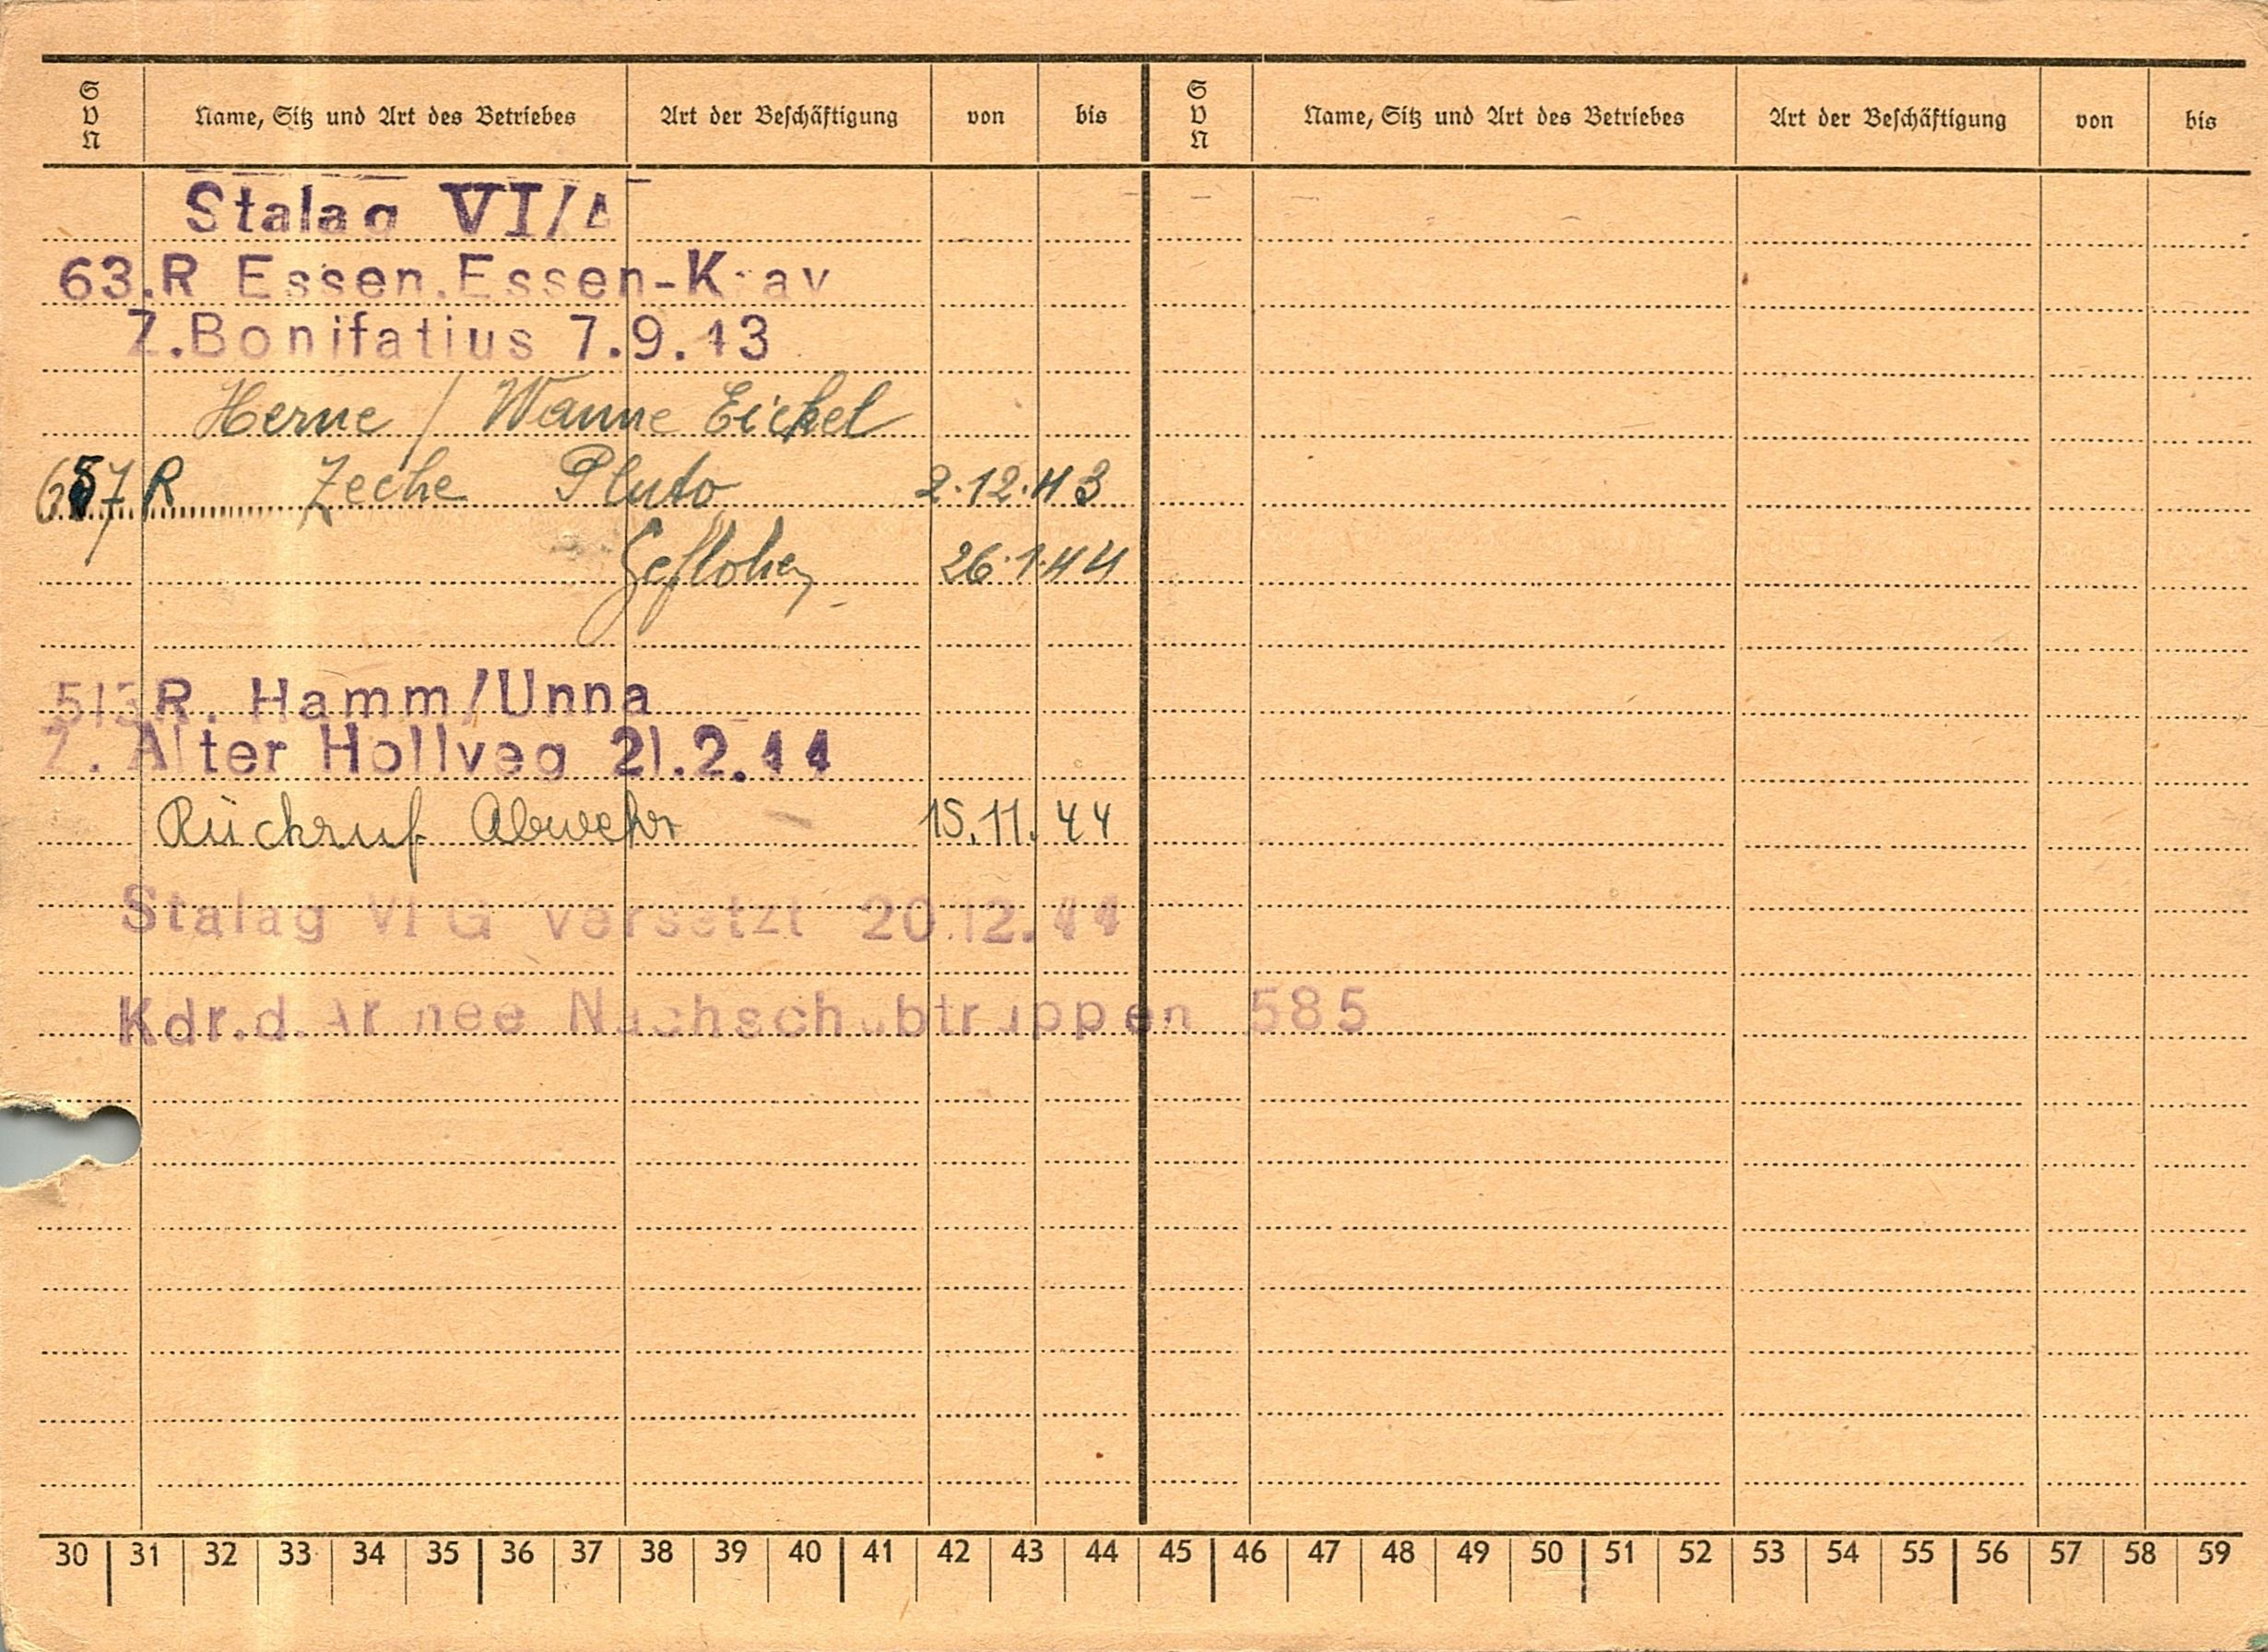 S v N Name, Sitz und Art des Betriebes Art der Beschäftigung von bis S v N Name, Sitz und Art des Betriebes Art der Beschäftigung von bis
Stalag VI/A
63.R Essen.Essen-Kray
Z.Bonifatius 7.9.43
Herne / Wanne Eickel
R Zeche Pluto 2.12.43
Geflohen 26.1.44
513R. Hamm/Unna
Z. Alter Hollveg 21.2.44
Rückruf Abwehr 15.11.44
Stalag VI G versetzt 20.12.44
Kdr.d.Armee Nachschubtruppen 585
30 31 32 33 34 35 36 37 38 39 40 41 42 43 44 45 46 47 48 49 50 51 52 53 54 55 56 57 58 59